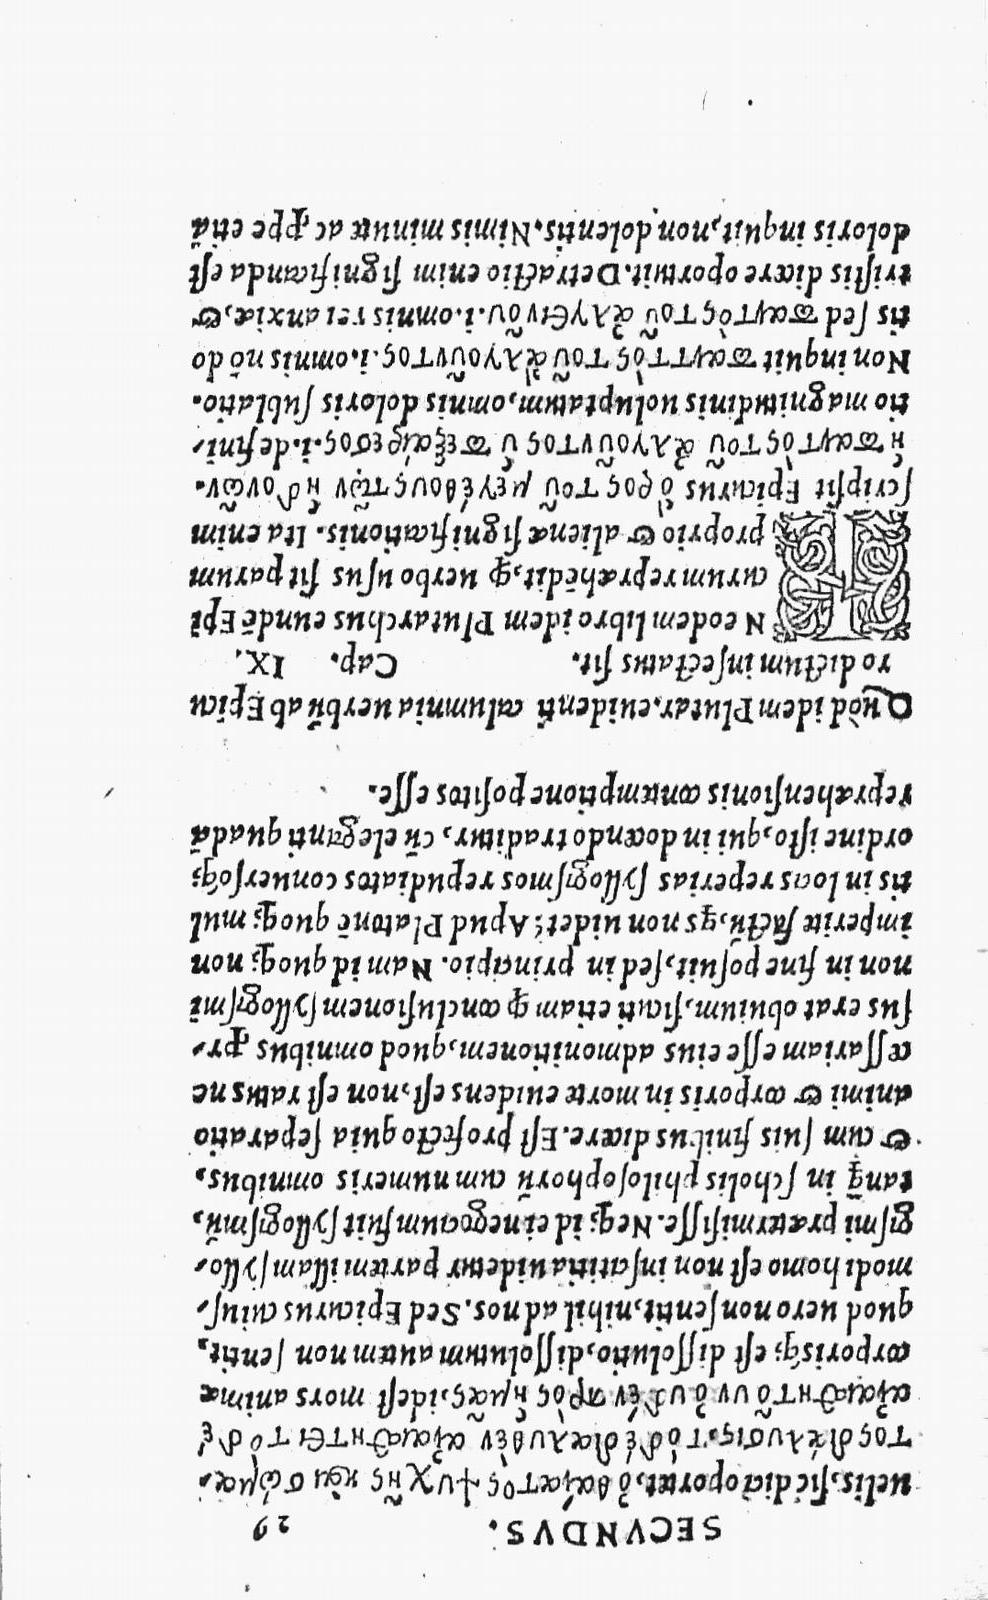 SECVNDVS. 29
uelis, sic dici oportet, ὁ θάνατος ψυχῆς καὶ σώμα-
τος διάλυσις. τὸ δὲ διαλυθὲν ἀναισθητεῖ τὸ δὲ
ἀναισθητοῦν οὐδὲν πρὸς ἡμᾶς, idest mors animæ
corporisq; est dissolutio, dissolutum autem non sentit,
quod uero non sentit, nihil ad nos. Sed Epicurus cuius-
modi homo est non inscitia uidetur partem illam syllo-
gismi prætermisisse. Neq; id ei negocium fuit syllogismũ,
tanq̃ in scholis philosophorũ cum numeris omnibus,
& cum suis finibus dicere. Est profecto quia separatio
animi & corporis in morte euidens est, non est ratus ne
cessariam esse eius admonitionem, quod omnibus pr-
sus erat obuium, sicuti etiam ꝙ conclusionem syllogismi
non in fine posuit, sed in principio. Nam id quoq; non
imperite factũ, qs non uidet? Apud Platonẽ quoq; mul
tis in locis reperias syllogismos repudiatos conuersosq;
ordine isto, qui in docendo traditur, cũ eleganti quadã
repræhensionis contemptione positos esse.
Quòd idem Plutar. euidenti calumnia uerbũ ab Epicu
ro dictum insectatus sit. Cap. IX.
IN eodem libro idem Plutarchus eundẽ Epi
curum repræhẽdit, ꝙ uerbo usus sit parum
proprio & alienæ significationis. Ita enim
scripsit Epicurus ὅρος τοῦ μεγέθους τῶν ἡδονῶν.
ἡ παντὸς τοῦ ἀλγοῦντος ὑπεξαίρεσις. i. defini-
tio magnitudinis uoluptatum, omnis doloris sublatio.
Non inquit παντὸς τοῦ ἀλγοῦντος. i. omnis nõ do
tis sed παντὸς τοῦ ἀλγεινοῦ. i. omnis rei anxiæ, &
tristis dicere oportuit. Detractio enim significanda est
doloris inquit, non dolentis. Nimis minute ac ꝓpe etiã